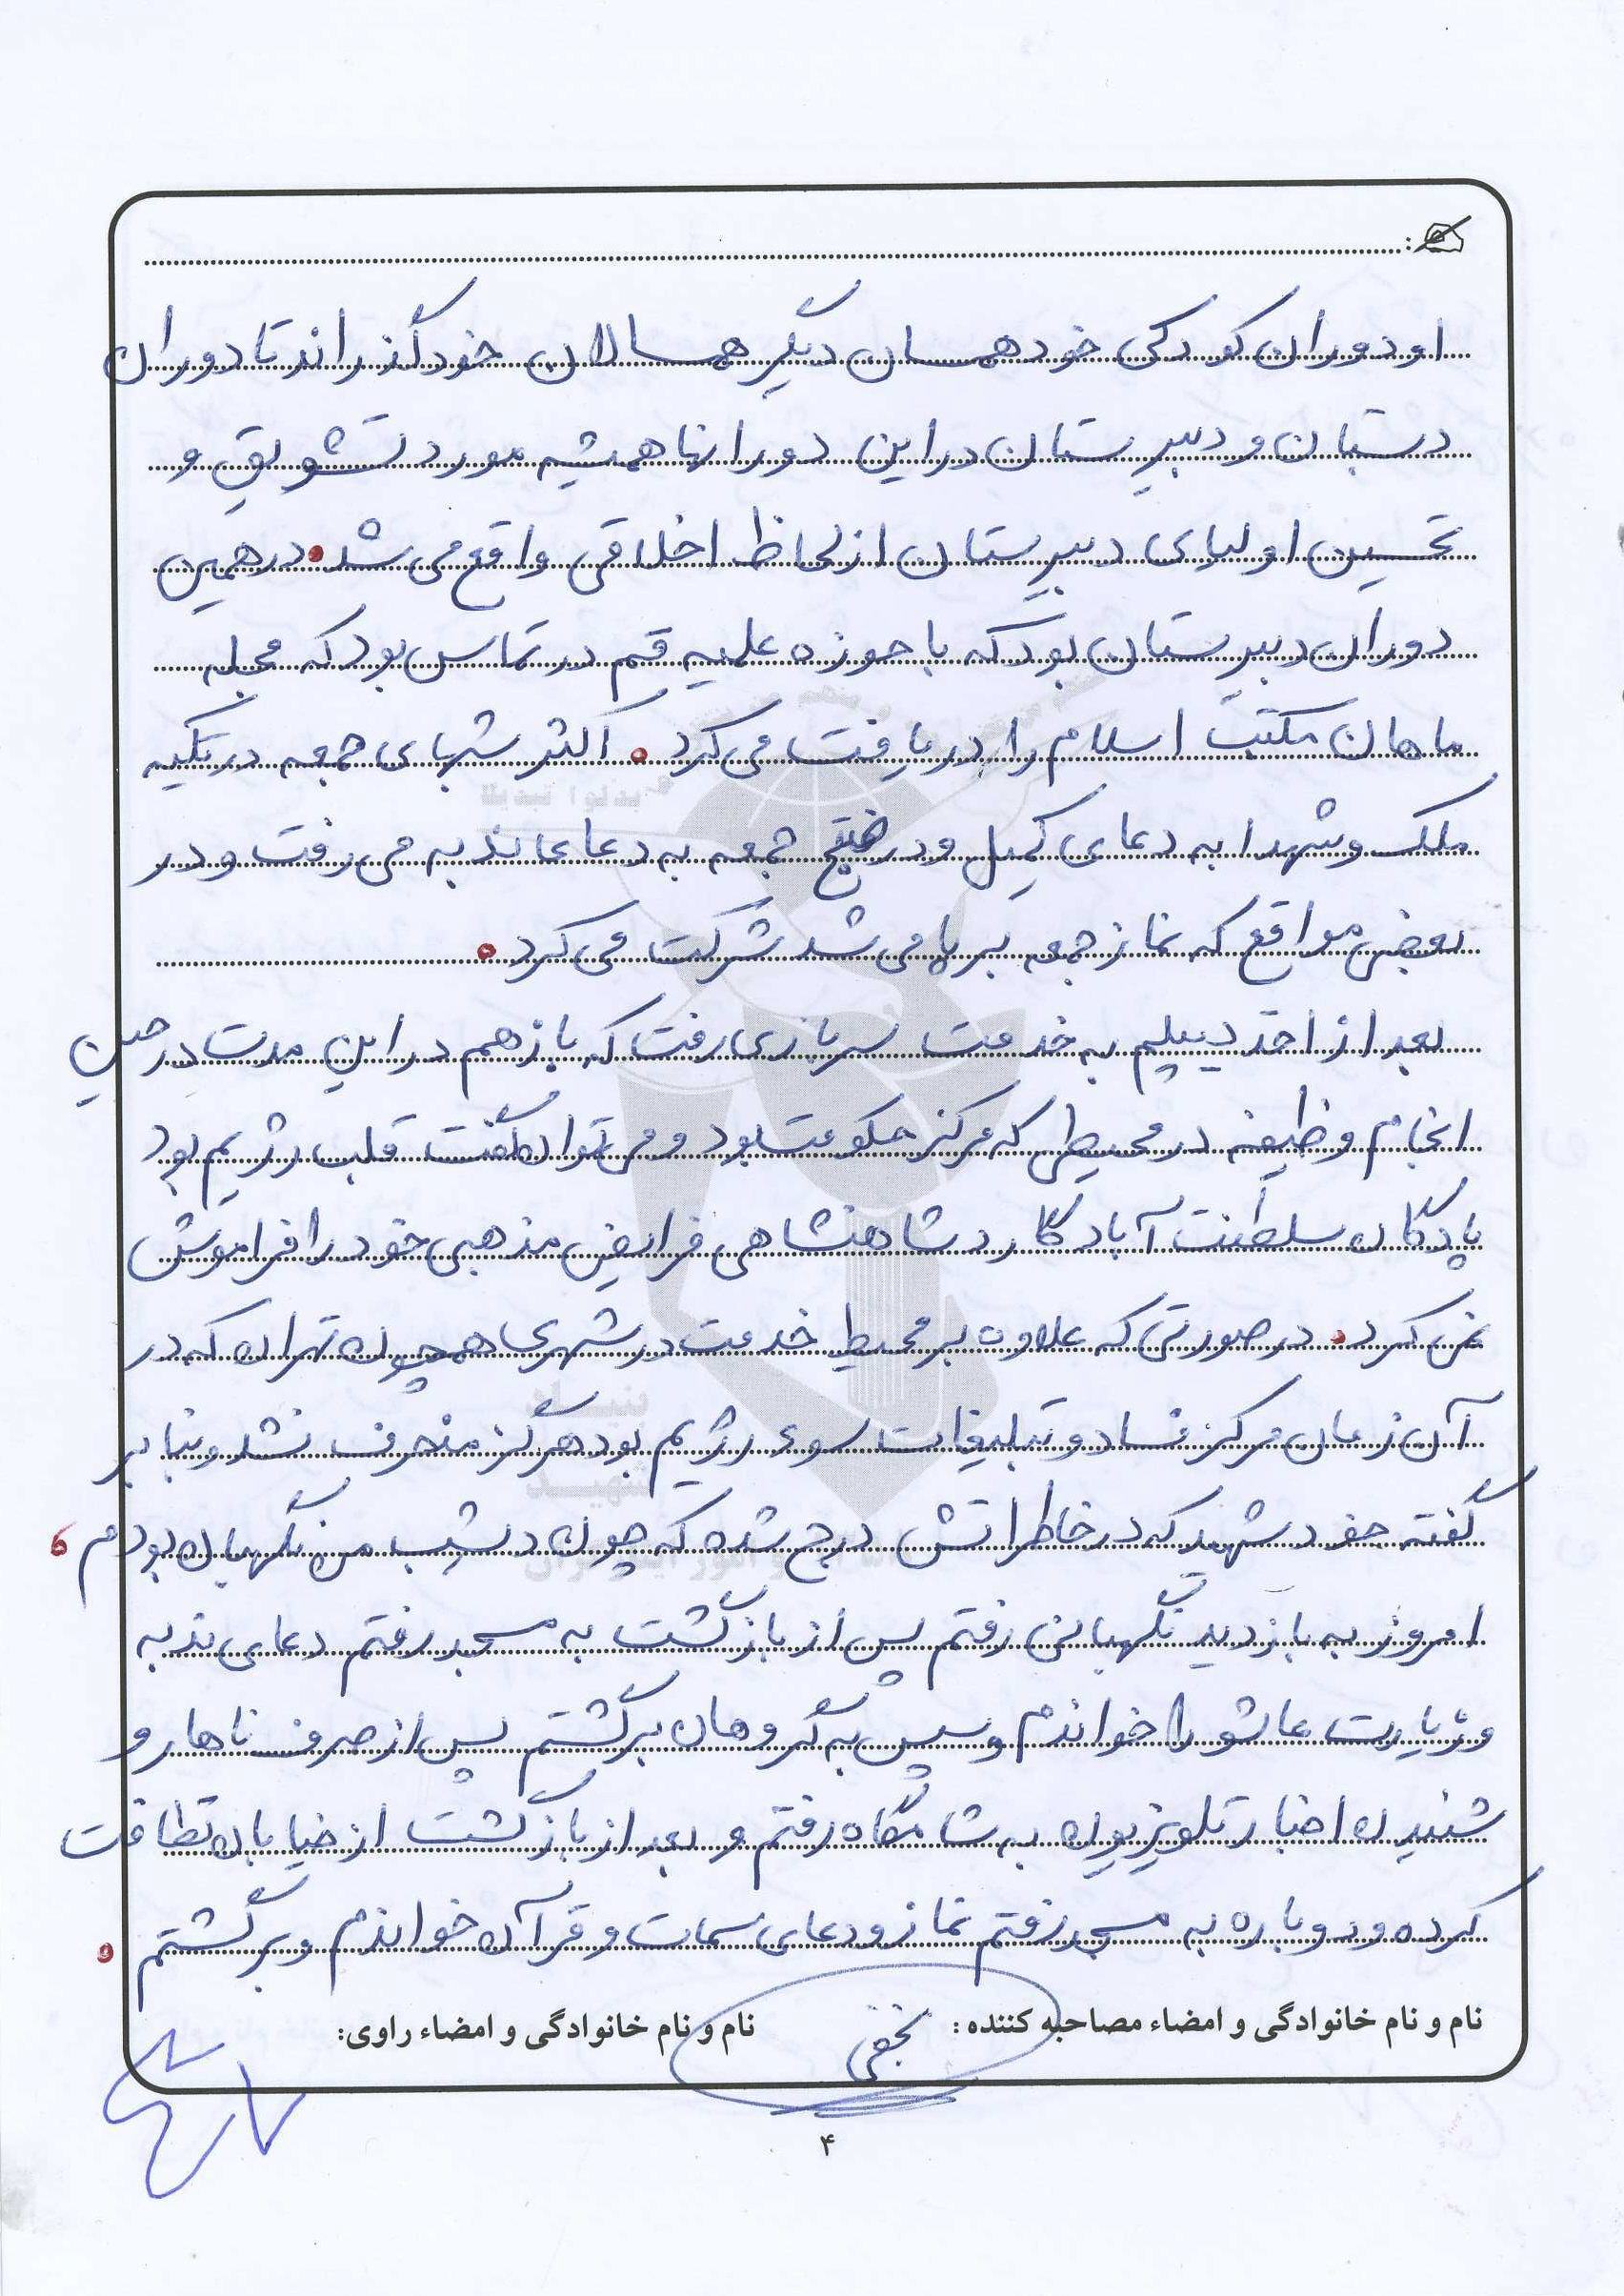 او دوران کودکی خود همسان دیگر همسالان خود گذراند تا دوران
دبستان و دبیرستان در این دورانها همیشه مورد تشویق و
تحسین اولیای دبیرستان از لحاظ اخلاقی واقع می شد. در همین
دوران دبیرستان بود که با حوزه علمیه قم در تماس بود که مجله
ماهان مکتب اسلام را دریافت می کرد. اکثر شبهای جمعه در تکیه
ملک و شهدا به دعای کمیل و در صبح جمعه به دعای ندبه می رفت و در
بعضی مواقع که نماز جمعه برپا می شد شرکت می کرد.
بعد از اخذ دیپلم به خدمت سربازی رفت که باز هم در این مدت در حین
انجام وظیفه در محیطی که مرکز حکومت بود و می توان گفت قلب رژیم بود
پادگان سلطنت آباد گارد شاهنشاهی فرایض مذهبی خود را فراموش
نمی کرد. در صورتی که علاوه بر محیط خدمت در شهری همچون تهران که در
آن زمان مرکز فساد و تبلیغات سوء رژیم بود هرگز منحرف نشد و بنا بر
گفته خود شهید که در خاطراتش درج شده که چون دیشب من نگهبان بودم،
امروز به بازدید نگهبانی رفتم پس از بازگشت به مسجد رفتم دعای ندبه
و زیارت عاشورا خواندم و سپس به گروهان برگشتم پس از صرف ناهار و
شنیدن اخبار تلویزیون به شامگاه رفتم و بعد از بازگشت از خیابان نظافت
کرده و دوباره به مسجد رفتم نماز و دعای سمات و قرآن خواندم و برگشتم.
نام و نام خانوادگی و امضاء مصاحبه کننده: نجفی
نام و نام خانوادگی و امضاء راوی:
۴